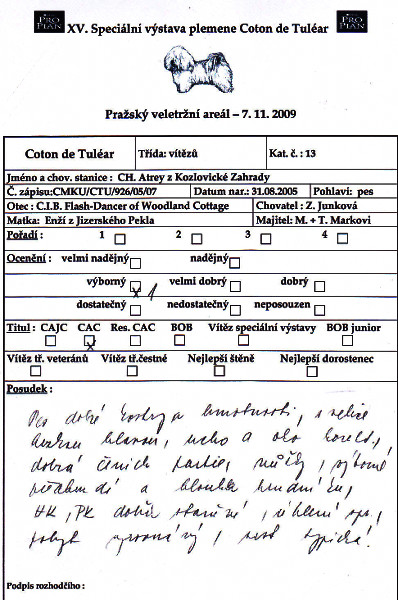 PRO PLAN XV. Speciální výstava plemene Coton de Tuléar PRO PLAN
Pražský veletržní areál – 7. 11. 2009
Coton de Tuléar Třída: vítězů Kat. č. : 13
Jméno a chov. stanice : CH. Atrey z Kozlovické Zahrady
Č. zápisu:CMKU/CTU/926/05/07 Datum nar.: 31.08.2005 Pohlaví: pes
Otec : C.I.B. Flash-Dancer of Woodland Cottage Chovatel : Z. Junková
Matka: Enží z Jizerského Pekla Majitel: M. + T. Markovi
Pořadí : 1 2 3 4
Ocenění : velmi nadějný nadějný
výborný x 1 velmi dobrý dobrý
dostatečný nedostatečný neposouzen
Titul : CAJC CAC Res. CAC BOB Vítěz speciální výstavy BOB junior
x
Vítěz tř. veteránů Vítěz tř.čestné Nejlepší štěně Nejlepší dorostenec
Posudek :
Pes dobré kostry a hmotnosti, s velice
hlavou, ucho a oko
dobrá partie,
předhrudí a hrudníku,
HK, PK dobře stavěné,
pohyb, srst typická!
Podpis rozhodčího :